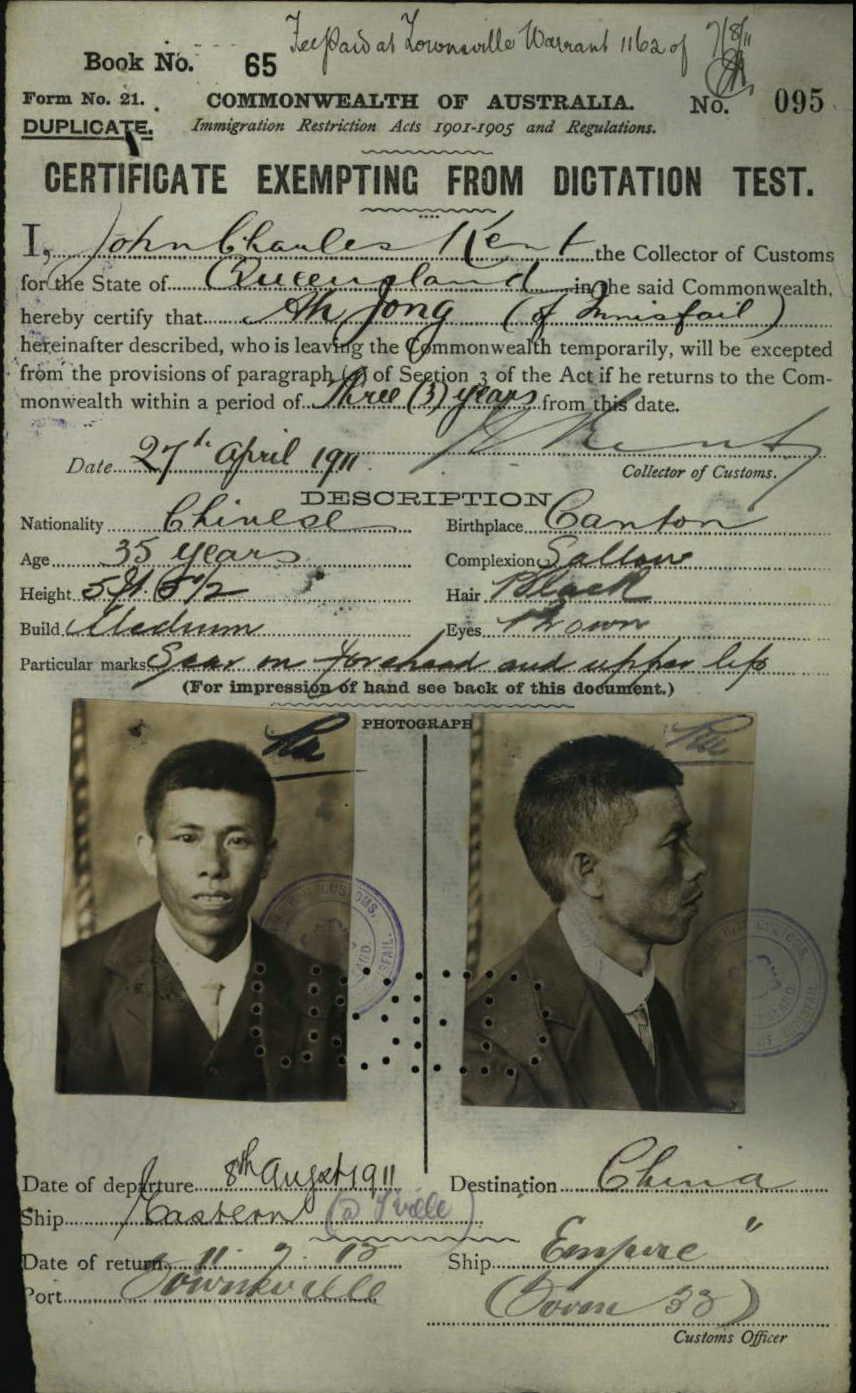 Fee Paid at Townsville Warrant 1162 of 7/8/11
Book No. 65
Form No. 21. COMMONWEALTH OF AUSTRALIA. No. 095
DUPLICATE. Immigration Restriction Acts 1901-1905 and Regulations.
CERTIFICATE EXEMPTING FROM DICTATION TEST.
I, John Charles Kent the Collector of Customs
for the State of Queensland in the said Commonwealth,
hereby certify that Ah Jong (of Innisfail)
hereinafter described, who is leaving the Commonwealth temporarily, will be excepted
from the provisions of paragraph (a) of Section 3 of the Act if he returns to the Com-
monwealth within a period of Three (3) years from this date.
Date 27th April 1911 Kent
Collector of Customs.
DESCRIPTION
Nationality Chinese Birthplace Canton
Age 35 years Complexion Sallow
Height 5 ft. 5 1/2 Hair Black
Build Medium Eyes Brown
Particular marks Scar on forehead and upper lip
(For impression of hand see back of this document.)
PHOTOGRAPH
Date of departure 8th August 1911 Destination China
Ship Eastern (@ T'ville)
Date of return Ship Empire "
Port Townsville
Customs Officer